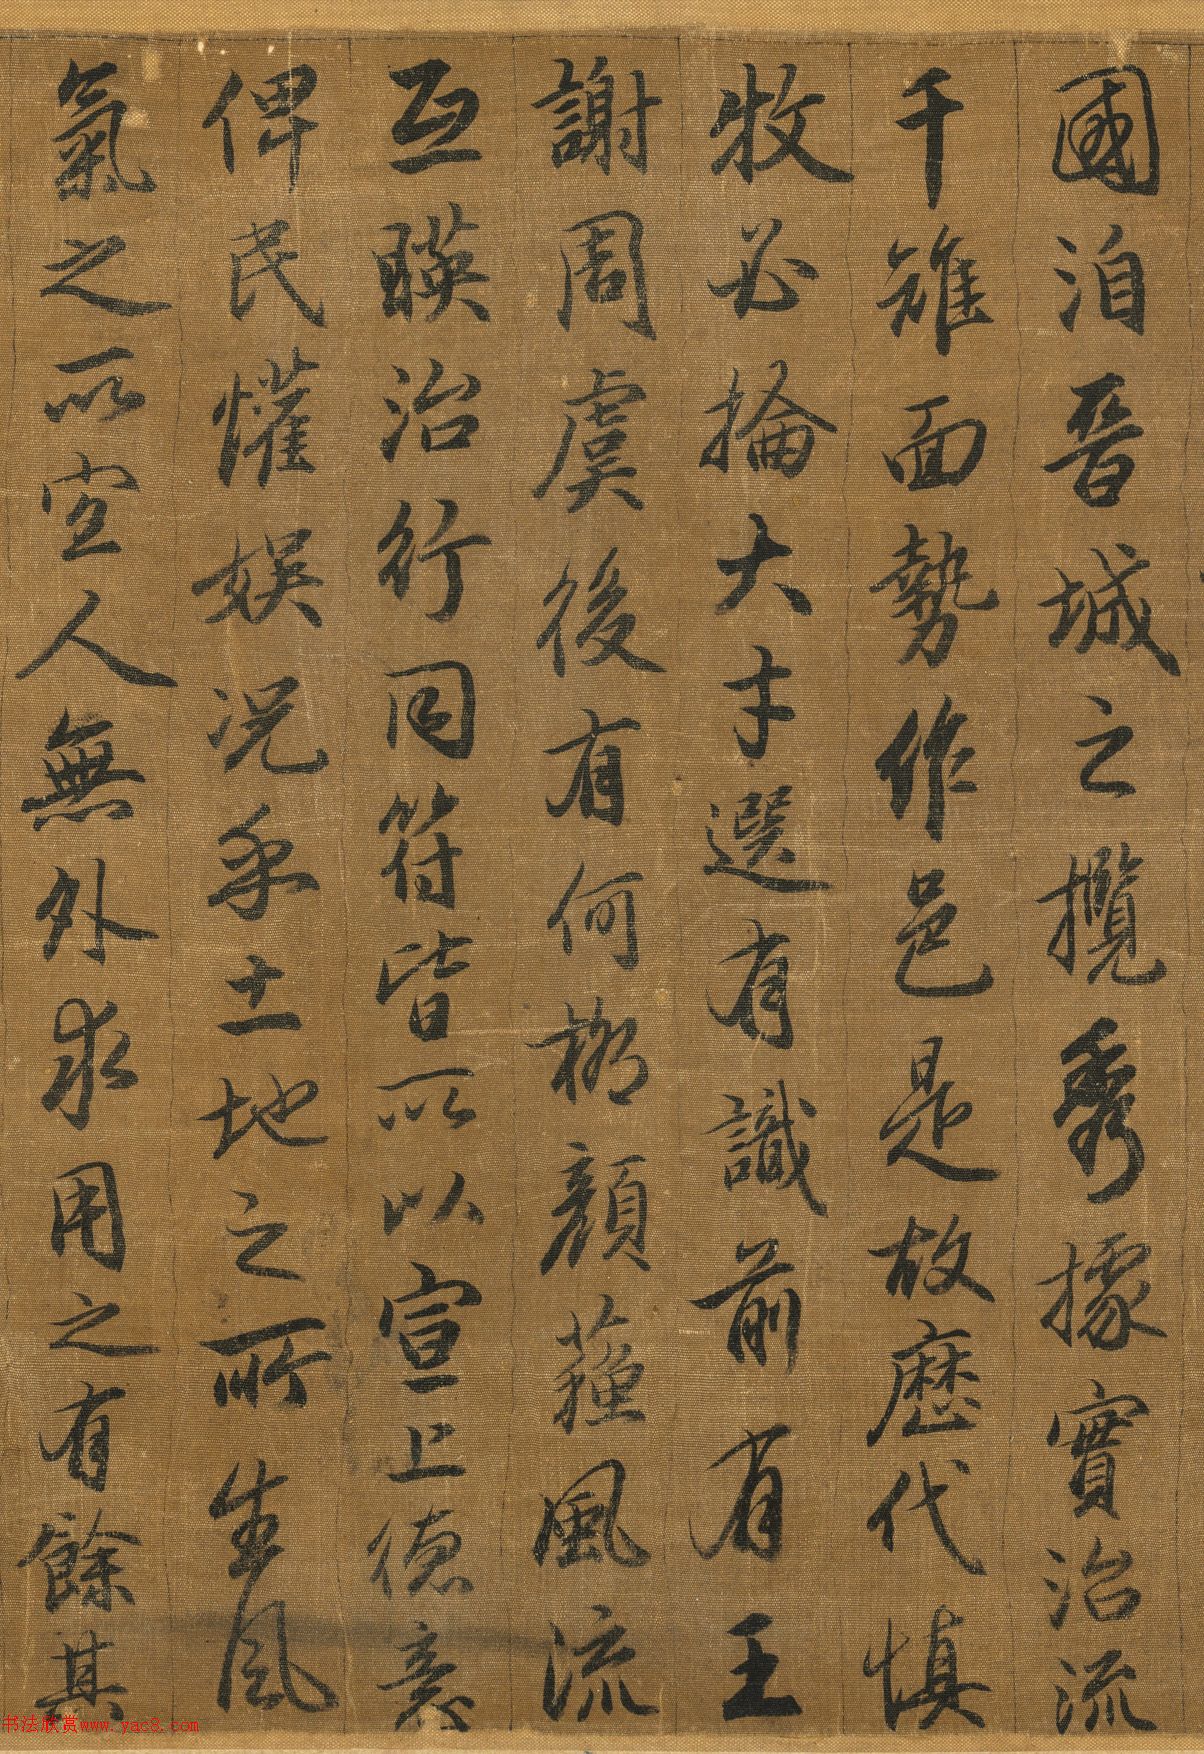 國洎晉城之攬秀據實治流
千雉面勢作邑是故歷代慎
牧必掄大才選有識前有王
謝周虞後有何柳顏蘓風流
互暎治行同符皆所以宣上德意
俾民懽娱况乎土地之所生風
氣之所宜人無外求用之有餘其
书法欣赏www.yac8.com